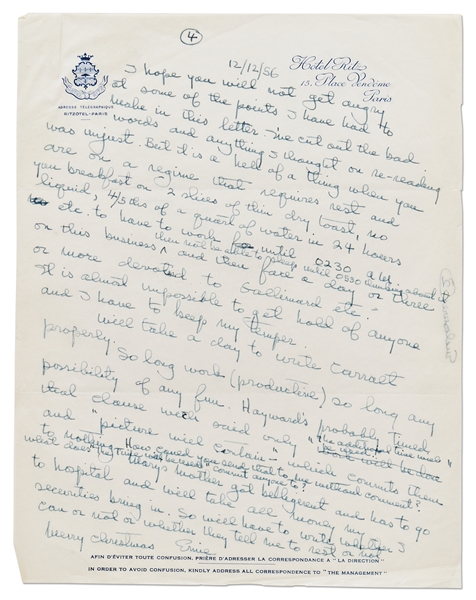 4
12/12/56
Hotel Ritz
15, Place Vendôme
Paris
ADRESSE TÉLÉGRAPHIQUE
RITZOTEL-PARIS
I hope you will not get angry
at some of the points I have had to
make in this letter. I've cut out the bad
words and anything I thought on re-reading
was unjust. But it is a hell of a thing when you
are on a regime that requires rest and
you breakfast on 2 slices of thin dry toast, no
liquid, 4/5 ths of a quart of water in 24 hours
etc. to have to work until 0230 a.m.
on this business then not be able to sleep until 0530 thinking about it
and then face a day or three
or more devoted to Gallimard etc.
It is almost impossible to get hold of anyone
and I have to keep my temper.
Will take a day to write
properly. So long work (productive) so long any
possibility of any fun. Hayward's probably
that clause which said only
and "picture will contain" which commits them
to nothing. How could you send that to me without comment?
what does commit anyone to?
Mary's mother got belligerent and has to go
to hospital and will take all money my
securities bring in. So will have to write whether I
can or not or whether they tell me to rest or not
Merry Christmas Ernie
AFIN D'ÉVITER TOUTE CONFUSION, PRIÈRE D'ADRESSER LA CORRESPONDANCE A "LA DIRECTION"
IN ORDER TO AVOID CONFUSION, KINDLY ADDRESS ALL CORRESPONDENCE TO "THE MANAGEMENT"